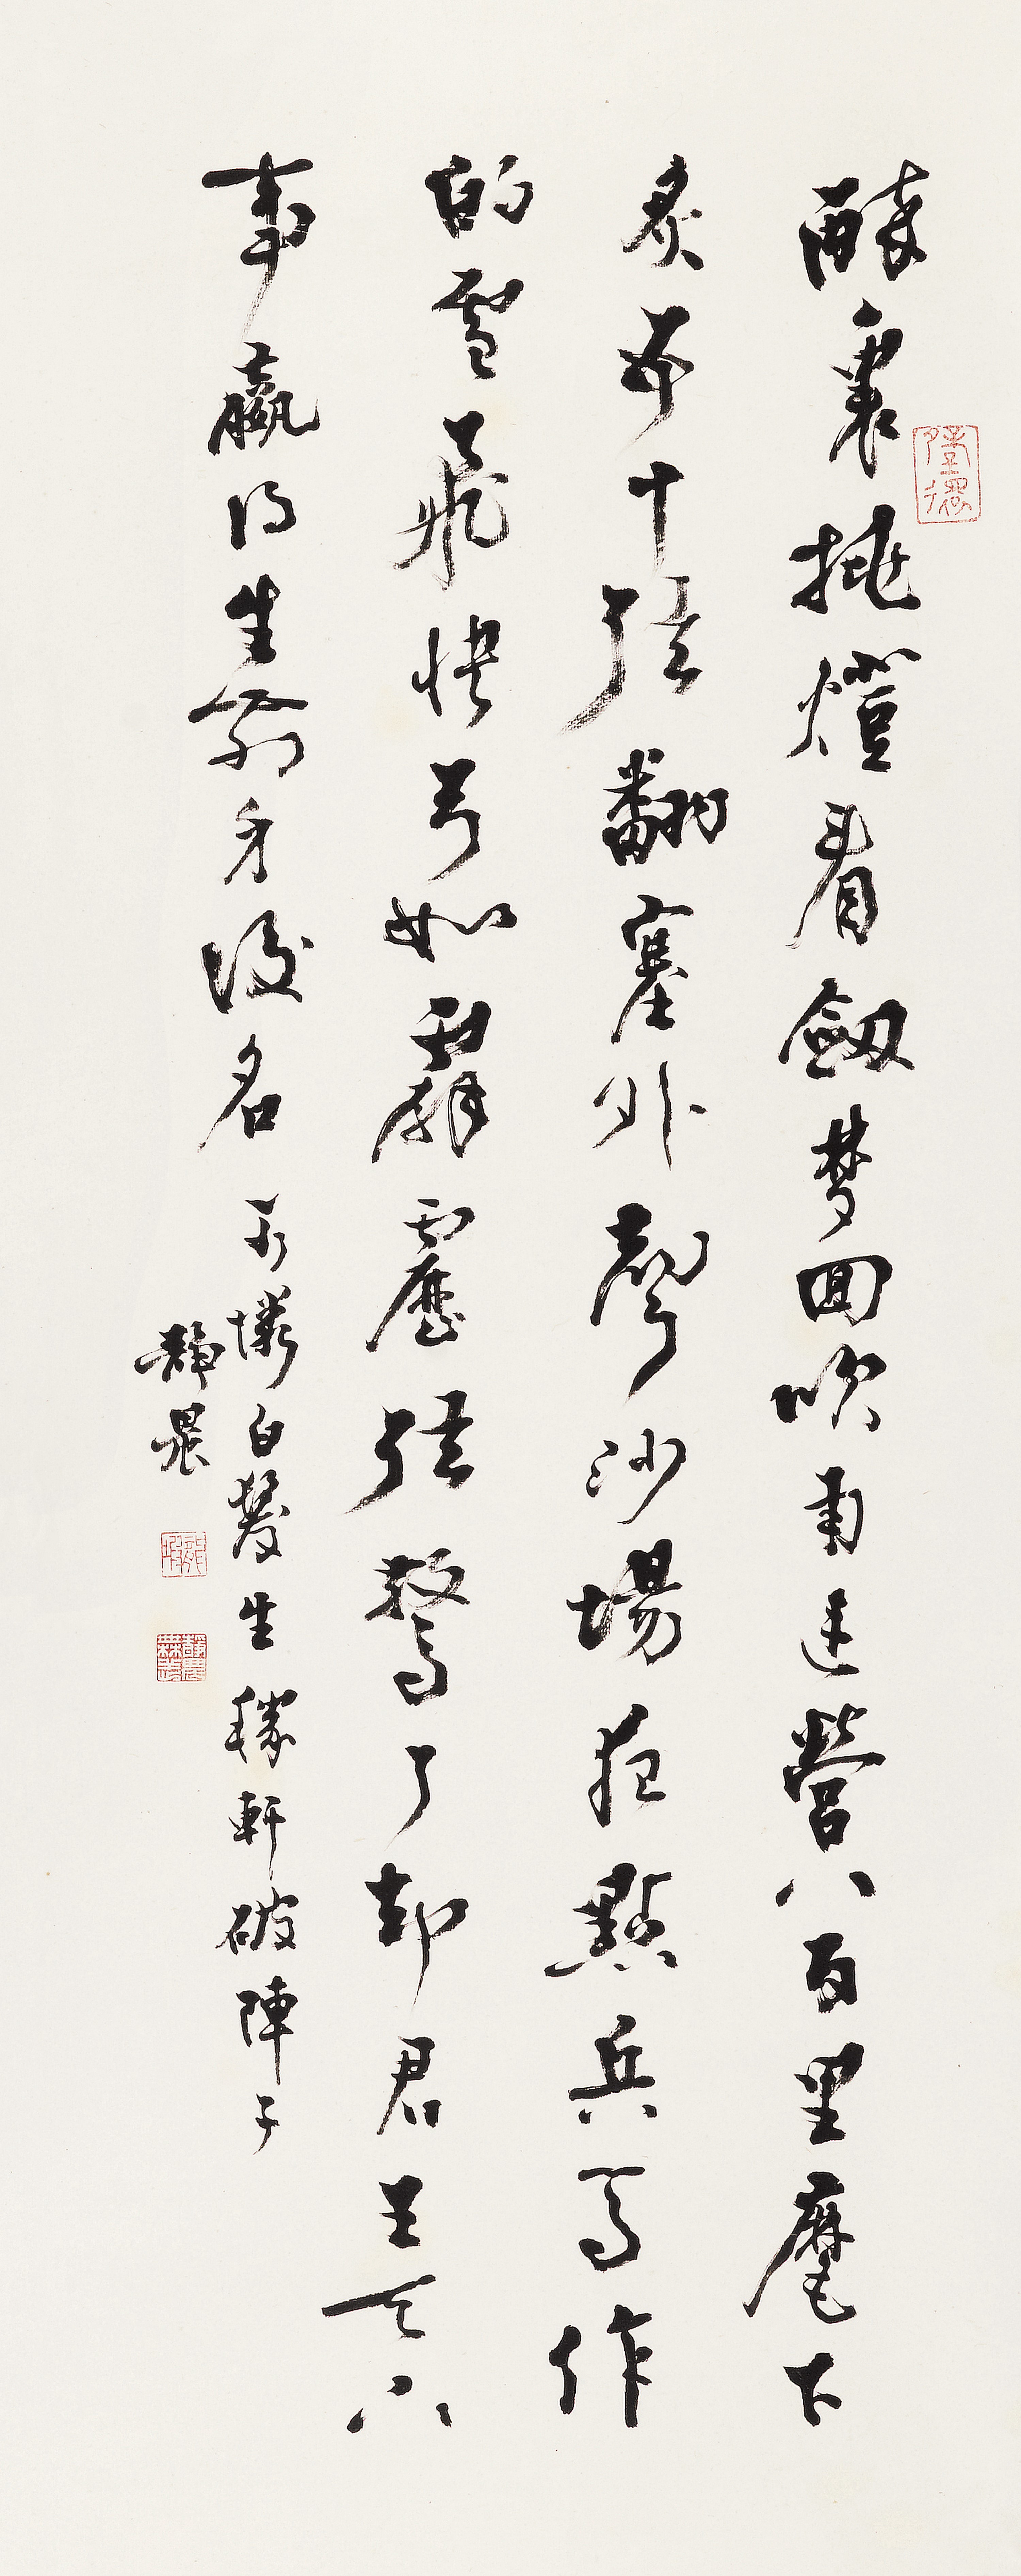 醉裏挑燈看劔梦回吹角連營八百里麾下
炙五十弦翻塞外聲沙場秋點兵馬作
的盧飛快弓如霹靂弦驚了却君王天下
事贏得生前身後名 可憐白髮生 稼軒破陣子
靜農